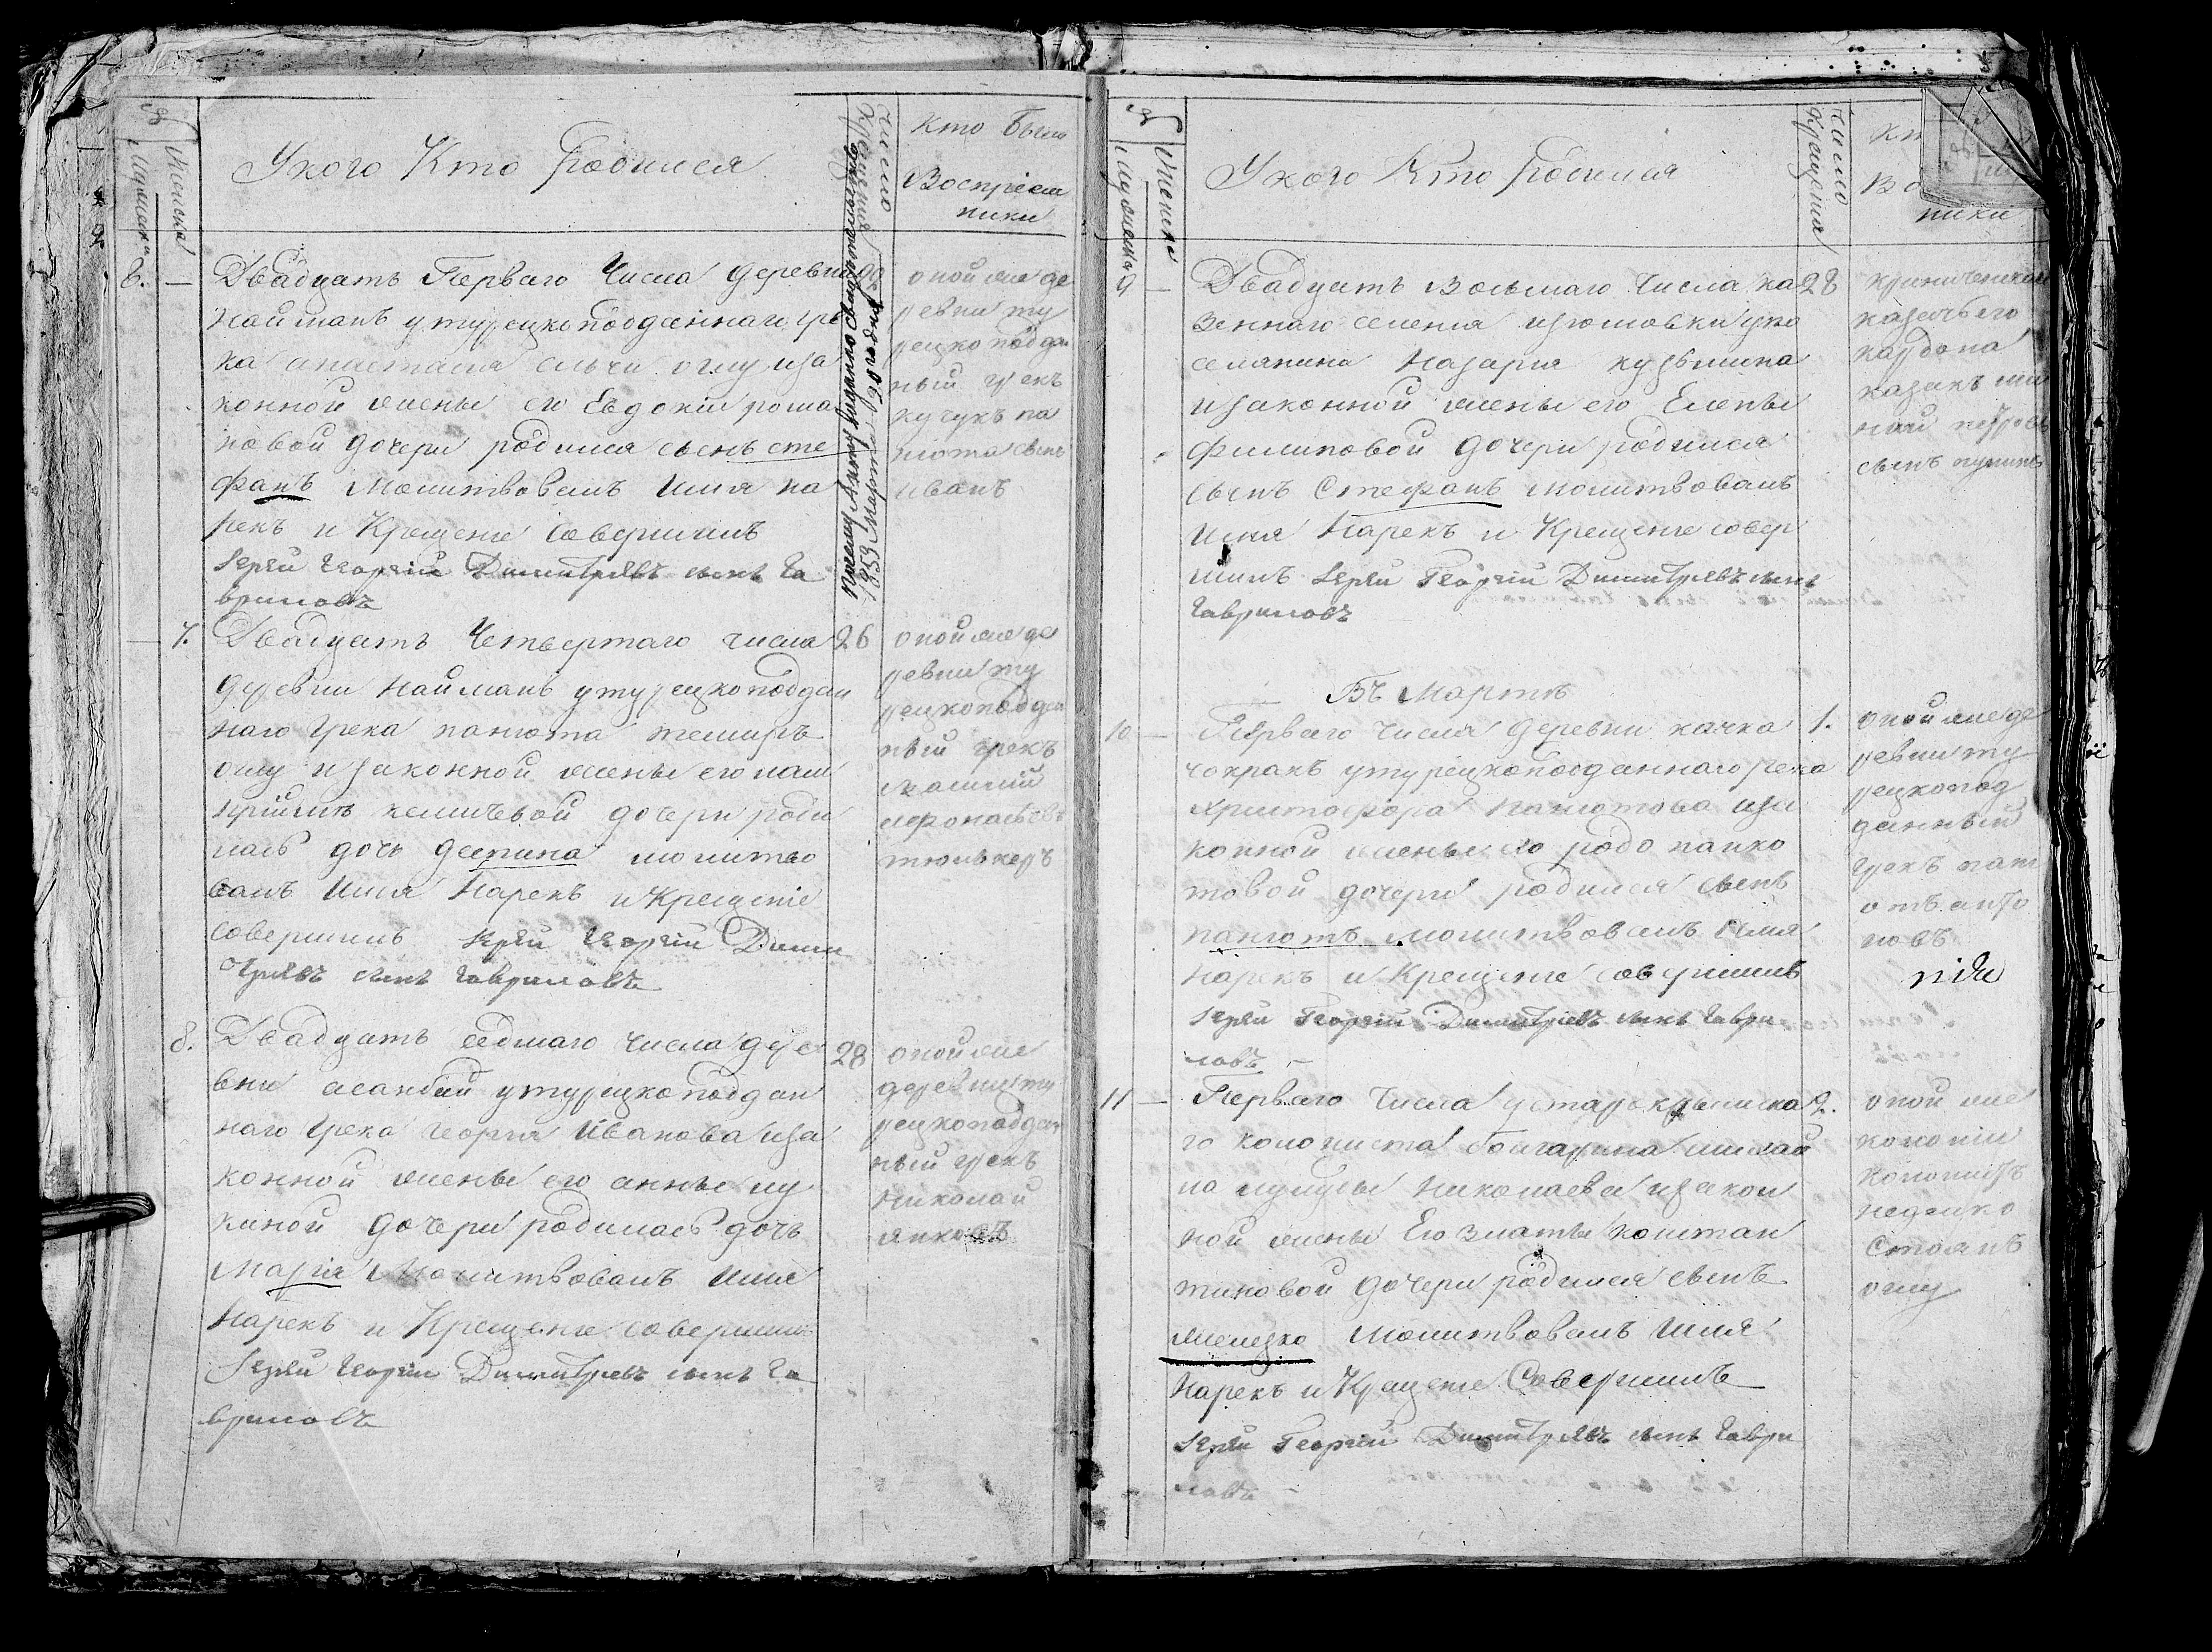 №
Мужеска
Женска
У кого Кто Родился
Число
Крещения
Кто были
Воспріем
ники
6.
Двадцать Перваго Числа деревни
Найманъ у турецкоподданнаго гре
ка
оглу иза
конной жены его Евдокіи рома
новой дочери родился сынъ сте
фанъ Молитвовалъ Имя на
рекъ и Крещеніе совершилъ
Іерей Георгій Димитріевъ сынъ Га
вриловъ
По сему Акту выдано свидетельство
1859 Марта
оной же де
ревни ту
рецкоподдан
ный грекъ
кучукъ па
ніота сынъ
иванъ
7.
Двадцать Четвертаго числа
26
деревни Найманъ у турецкоподдан
наго Грека паніота темиръ
оглу и законной жены его
дочери роди
лась дочь деспина молитво
валъ Имя Нарекъ и Крещеніе
совершилъ Іерей Георгій Дими
тріевъ сынъ Гавриловъ
оной же де
ревни ту
рецкоподдан
ный грекъ
8.
Двадцать седмаго Числа дере
28
вни асанбай у турецкоподдан
наго Грека Георгія Иванова иза
конной жены его анны лу
киной дочери родилась дочь
Марія Молитвовалъ Имя
Нарекъ и Крещеніе совершилъ
Іерей Георгій Димитріевъ сынъ Га
вриловъ
оной же
деревни ту
рецкоподдан
ный грекъ
Николай
янковъ
№
Мужеска
Женска
У кого Кто Родился
Число
Крещения
ники
9
Двадцать Восьмаго Числа ка
28
зеннаго селенія изюмовки у по
селянина Назарія кузьмина
и законной жены его Елены
Филиповой дочери родился
сынъ Стефанъ молитвовалъ
Имя Нарекъ и Крещеніе совер
шилъ Іерей Георгій Димитріевъ сынъ
Гавриловъ
казачьего
кардона
казакъ
сынъ
Въ Мартѣ
10
Перваго Числа деревни качка
1.
чокракъ у турецкоподданнаго грека
христофора Паніотова иза
конной жены его
товой дочери родился сынъ
паніотъ молитвовалъ Имя
Нарекъ и Крещеніе совершилъ
Іерей Георгій Димитріевъ сынъ Гаври
ловъ
оной же де
ревни ту
рецкопод
данный
грекъ пані
отъ анто
новъ
11
Перваго Числа у старокрымска
2.
го колониста болгарина
Николаева и закон
ной жены Его Златы констан
тиновой дочери родился сынъ
Молитвовалъ Имя
Нарекъ и Крещеніе Совершилъ
Іерей Георгій Димитріевъ сынъ Гаври
ловъ
оной же
колоніи
колонистъ
неделко
Стоянъ
оглу